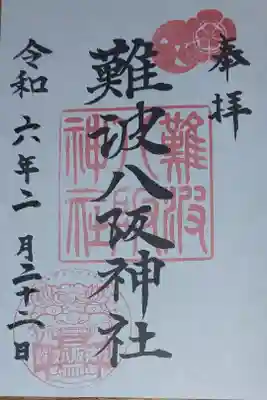 奉拝
難波八阪神社
難波
八阪
神社
令和六年二月二十二日